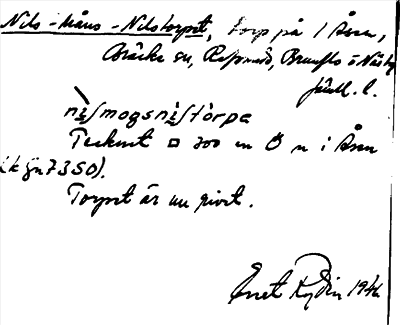 Nils-Måns-Nilstorpet, torp på 1 Åsen,
Bräcke sn, Refsunds, Brunflo o Näs tg
Jämtl. l.
nìʃmogsnìʃtòrpe
Tecknet □ 700 m Ö n i Åsen
(k Gn7350).
Torpet är nu rivet.
Ernst Rydin 1946